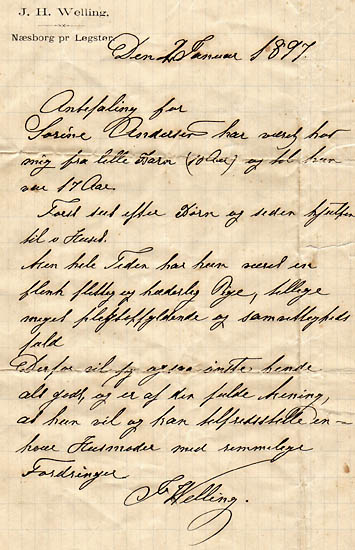 J. H. Welling.
Næsborg pr Løgstør.
Den 2 Januar 1897.
Anbefaling for
Sørine Andersen har været hos
mig fra lille Barn (10 Aar) og til hun
var 17 Aar.
Først set efter Børn og siden hjulpen
til i Huset.
Men hele Tiden har hun været en
flenk flittig og hæderlig Pige, tillige
meget pligtopfyldende og samvittigheds
fuld
Derfor vil jeg ogsaa ønske hende
alt godt, og er af den fulde Mening,
at hun vil og kan tilfredsstille en-
hver Husmoder med rimelige
Fordringer.
J. H. Welling.